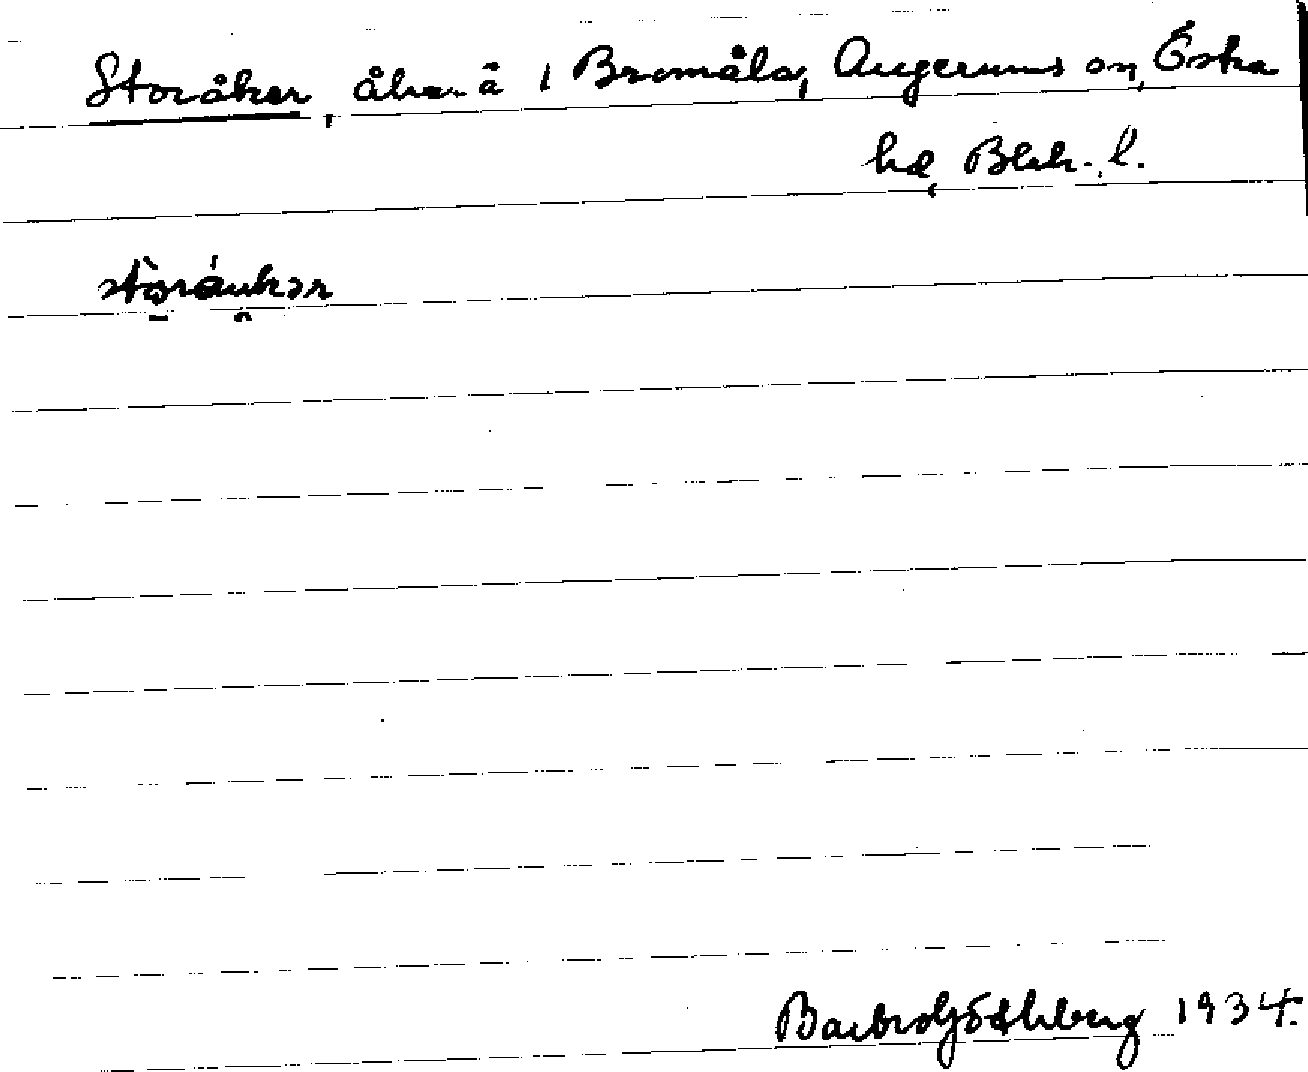 Storåker, åker å i Bromåla, Augerums sn, Östra
hd, Blek. l.
storáukər
Barbro Göthberg 1934.